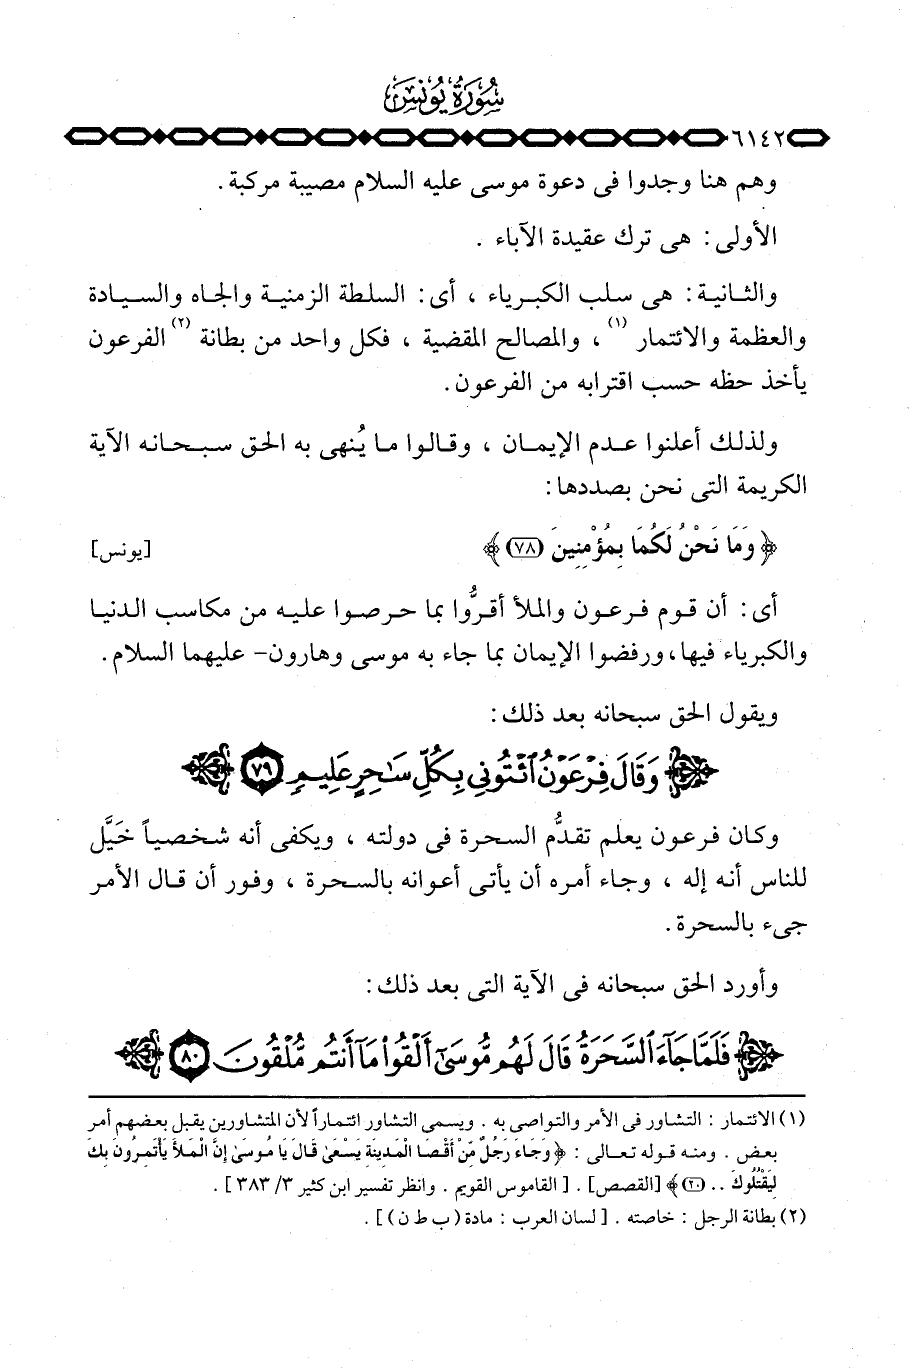 سُورَةُ يُونُسَ
٦١٤٢
وهم هنا وجدوا فى دعوة موسى عليه السلام مصيبة مركبة .
الأولى : هى ترك عقيدة الآباء .
والثـانيـة : هى سلب الكبـرياء ، أى : السلطة الزمنيـة والجاه والسيـادة
والعظمة والائتمار (١) ، والمصالح المقضية ، فكل واحد من بطانة (٢) الفرعون
يأخذ حظه حسب اقترابه من الفرعون .
ولذلك أعلنوا عـدم الإيمـان ، وقـالـوا مـا يُنهى به الحق سـبـحـانـه الآية
الكريمة التى نحن بصددها :
﴿ وَمَا نَحْنُ لَكُمَا بِمُؤْمِنِينَ (٧٨) ﴾ [يونس]
أى : أن قوم فرعون والملأ أقرُّوا بما حرصوا عليه من مكاسب الدنيا
والكبرياء فيها، ورفضوا الإيمان بما جاء به موسى وهارون- عليهما السلام .
ويقول الحق سبحانه بعد ذلك :
وَقَالَ فِرْعَوْنُ ٱئْتُونِى بِكُلِّ سَٰحِرٍ عَلِيمٍ ٧٩
وكان فرعون يعلم تقدُّم السحرة فى دولته ، ويكفى أنه شخصياً خَيَّل
للناس أنه إله ، وجاء أمره أن يأتى أعوانه بالسحرة ، وفور أن قال الأمر
جىء بالسحرة .
وأورد الحق سبحانه فى الآية التى بعد ذلك :
فَلَمَّا جَآءَ ٱلسَّحَرَةُ قَالَ لَهُم مُّوسَىٰٓ أَلْقُوا۟ مَآ أَنتُم مُّلْقُونَ ٨٠
(١) الائتمار : التشاور فى الأمر والتواصى به . ويسمى التشاور ائتماراً لأن المتشاورين يقبل بعضهم أمر
بعض . ومنه قوله تعالى : ﴿ وَجَاءَ رَجُلٌ مِّنْ أَقْصَا الْمَدِينَةِ يَسْعَىٰ قَالَ يَا مُوسَىٰ إِنَّ الْمَلأَ يَأْتَمِرُونَ بِكَ
لِيَقْتُلُوكَ .. (٢٠) ﴾ [القصص] . [ القاموس القويم . وانظر تفسير ابن كثير ٣/ ٣٨٣ ] .
(٢) بطانة الرجل : خاصته . [ لسان العرب : مادة ( ب ط ن ) ] .